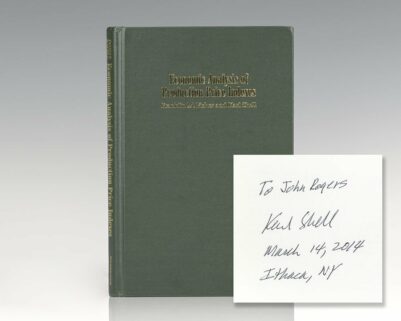 Economic Analysis of
Production Price Indexes
Franklin M. Fisher and Karl Shell
Economic Analysis of Production Price Indexes
To John Rogers
Karl Shell
March 14, 2014
Ithaca, NY